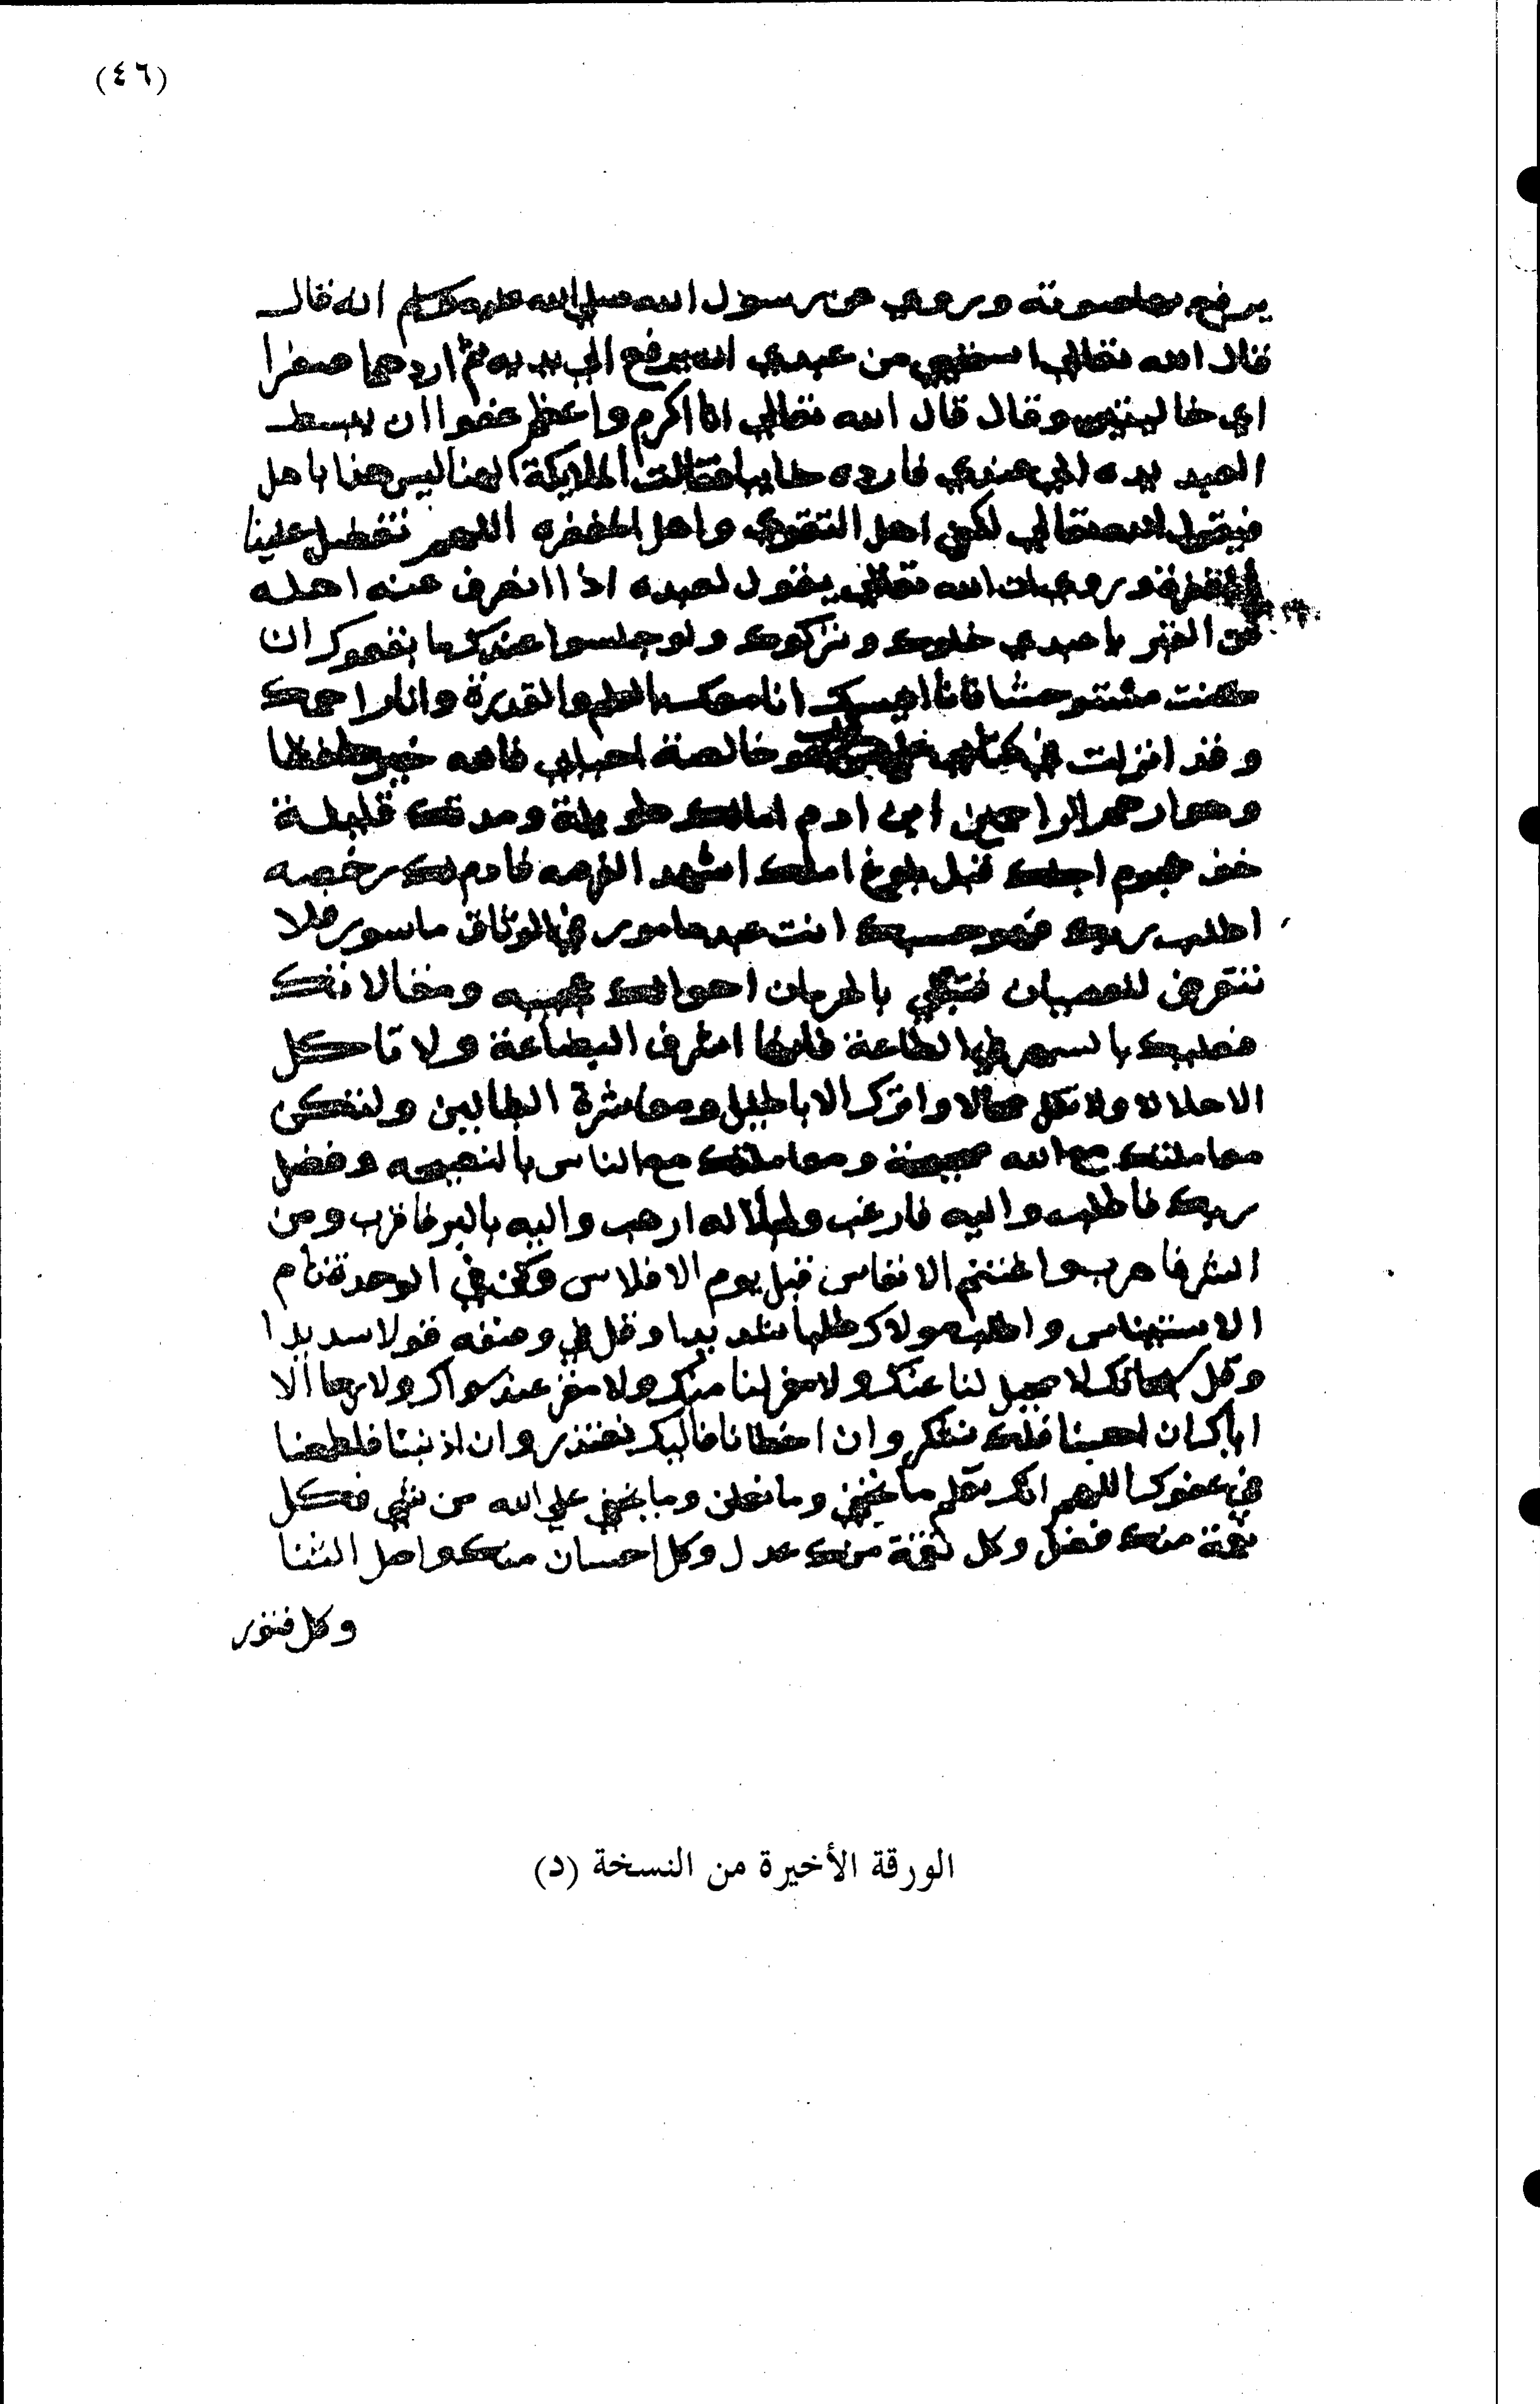 (٤٦)
يرفع بها صوته وروي عن رسول الله صلي الله عليه وسلم انه قال
قال الله تعالي استحيي من عبدي ان يرفع الي يديه ثم اردهما صفرا
اي خاليتين وقال قال الله تعالي انا اكرم واعظم عفوا ان يبسط
العبد يده الي عندي فارده خايبا فقالت الملايكة الهنا ليس هذا باهل
فيقول الله تعالي لكني اهل التقوي واهل المغفره اللهم تفضل علينا
بالمغفرة وروي ان الله تعالي يقول لعبده اذا انصرف عنه اهله
من القبر يا عبدي خلوك وتركوك ولو جلسوا عندك ما نفعوك ان
كنت مستوحشا فانا انيسك انا معك بالعلم والقدرة وانا راحمك
وقد انزلت في كتابي وخالصة احبابي فالله خير حافظا
وهو ارحم الراحمين ابن ادم امالك طويلة ومدتك قليلة
خف هجوم اجلك قبل بلوغ املك اشهد الفرصه فادم لك رخصه
اطلب ربك فهو حسبك انت عبد مامور في الوثاق ماسور فلا
تتعرض للعصيان فتبتلي بالحرمان احوالك عجيبه ومخالافتك
فعليك بالسهر في الطاعة فانها اشرف البضاعة ولا تاكل
الاحلالا ولا تقل محالا واترك الاباطيل ومعاشرة البطالين ولتكن
معاملتك مع الله صحيحة ومعاملتك مع الناس بالنصيحه وفضل
ربك فاطلب واليه فارغب ولجلاله ارهب واليه بالبر فاقرب ومن
الشر فاهرب واغتنم الانفاس قبل يوم الافلاس وكن في الوحدة تام
الاستيناس واطلب مولاك طلبا شديدا وقل في وصفه قولا سديدا
وقل سبحانك لا محيل لنا عنك ولا مفر لنا منك ولا مقر عند سواك ولا رجا الا
اياك ان احسنا فلك نشكر وان اخطانا فاليك نعتذر وان اذنبنا فاطمعنا
في عفوك اللهم انك تعلم ما نخفي وما نعلن وما يخفي علي الله من شي فكل
نعمة منك فضل وكل نقمة منك عدل وكل احسان منك واصل الثنا
وكل فتور
الورقة الأخيرة من النسخة (د)